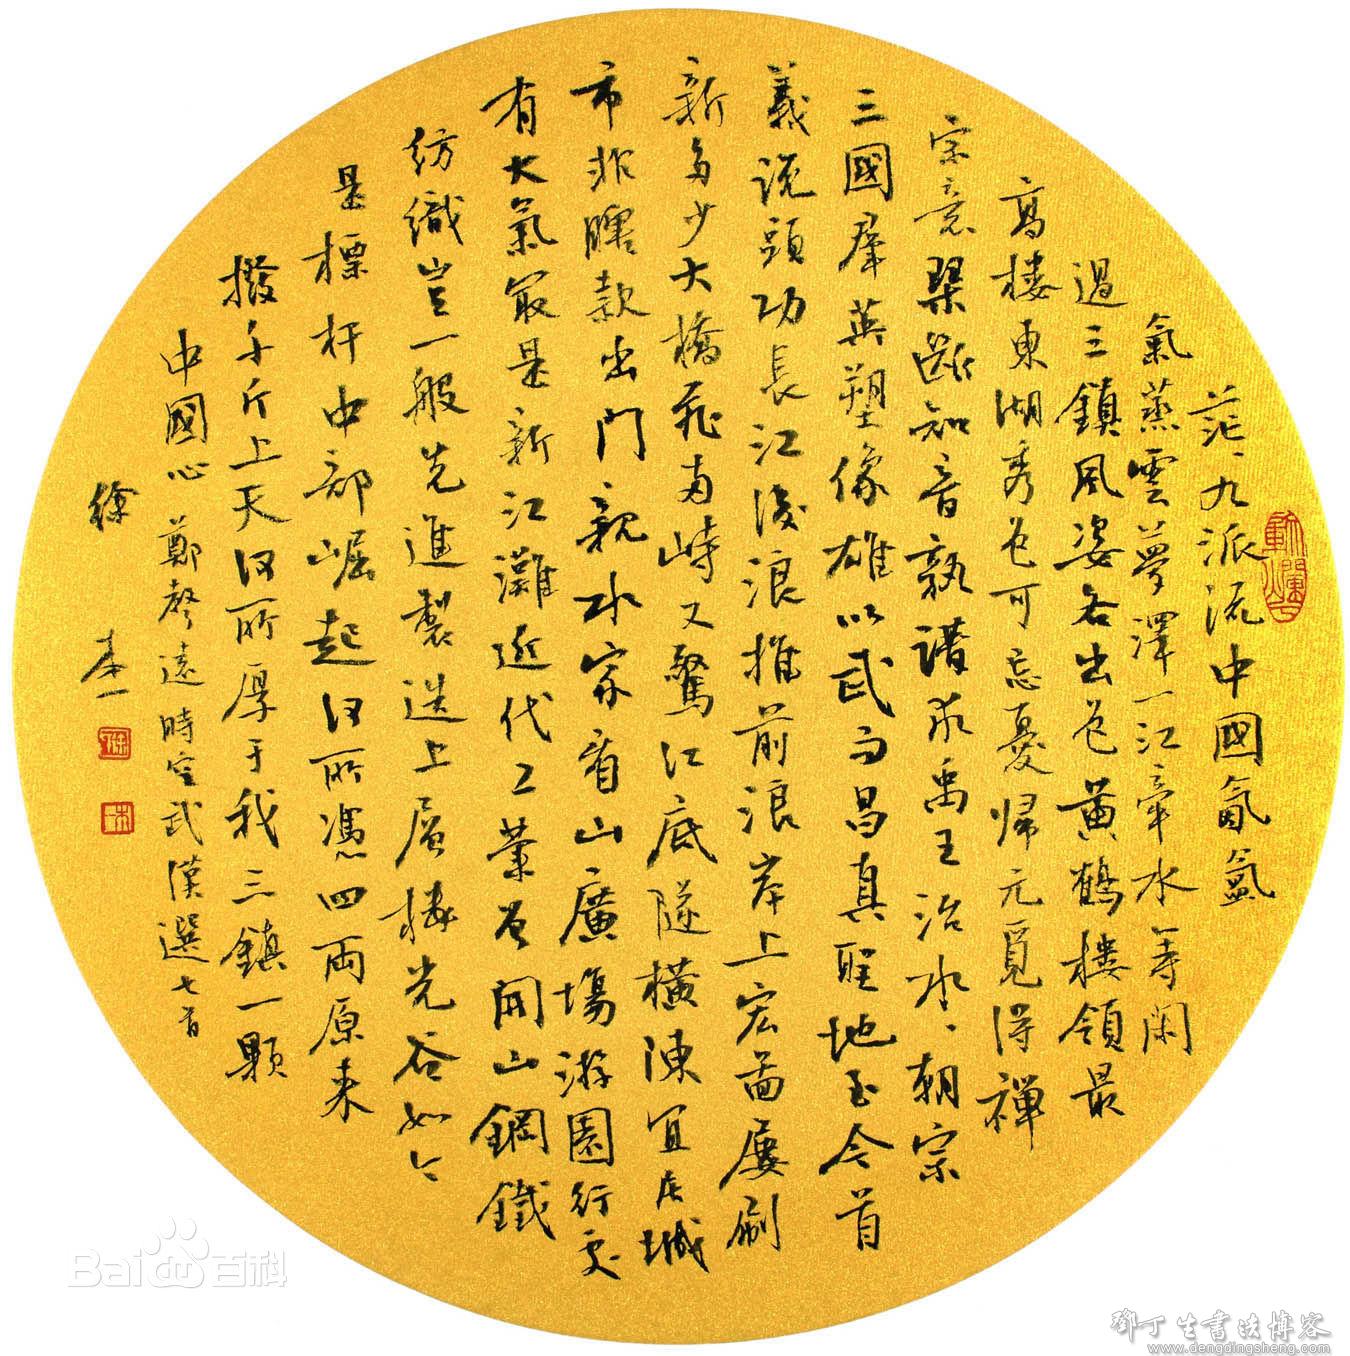 茫々九派流中國氤氳
氣蒸雲夢澤一江牽水等閑
過三鎮風姿各出色黃鶴樓領最
高樓東湖秀色可忘憂歸元覓得禪
宗意琴斷知音孰譜承禹王治水々朝宗
三國羣英塑像雄以武而昌真聖地至今首
義說頭功長江後浪推前浪岸上宏圖屢刷
新多少大橋飛兩峙又驚江底隧橫陳宜居城
市非瞎款出門親水家看山廣場游園行處
有大氣最是新江灘近代工業首開山鋼鐵
紡織豈一般先進製造上層樓光谷如今
是標杆中部崛起何所憑四兩原來
撥千斤上天何所厚于我三鎮一顆
中國心 鄭聲遠時空武漢選七首
徐本一
Bai 百科
鄧丁生書法博客
www.dengdingsheng.com